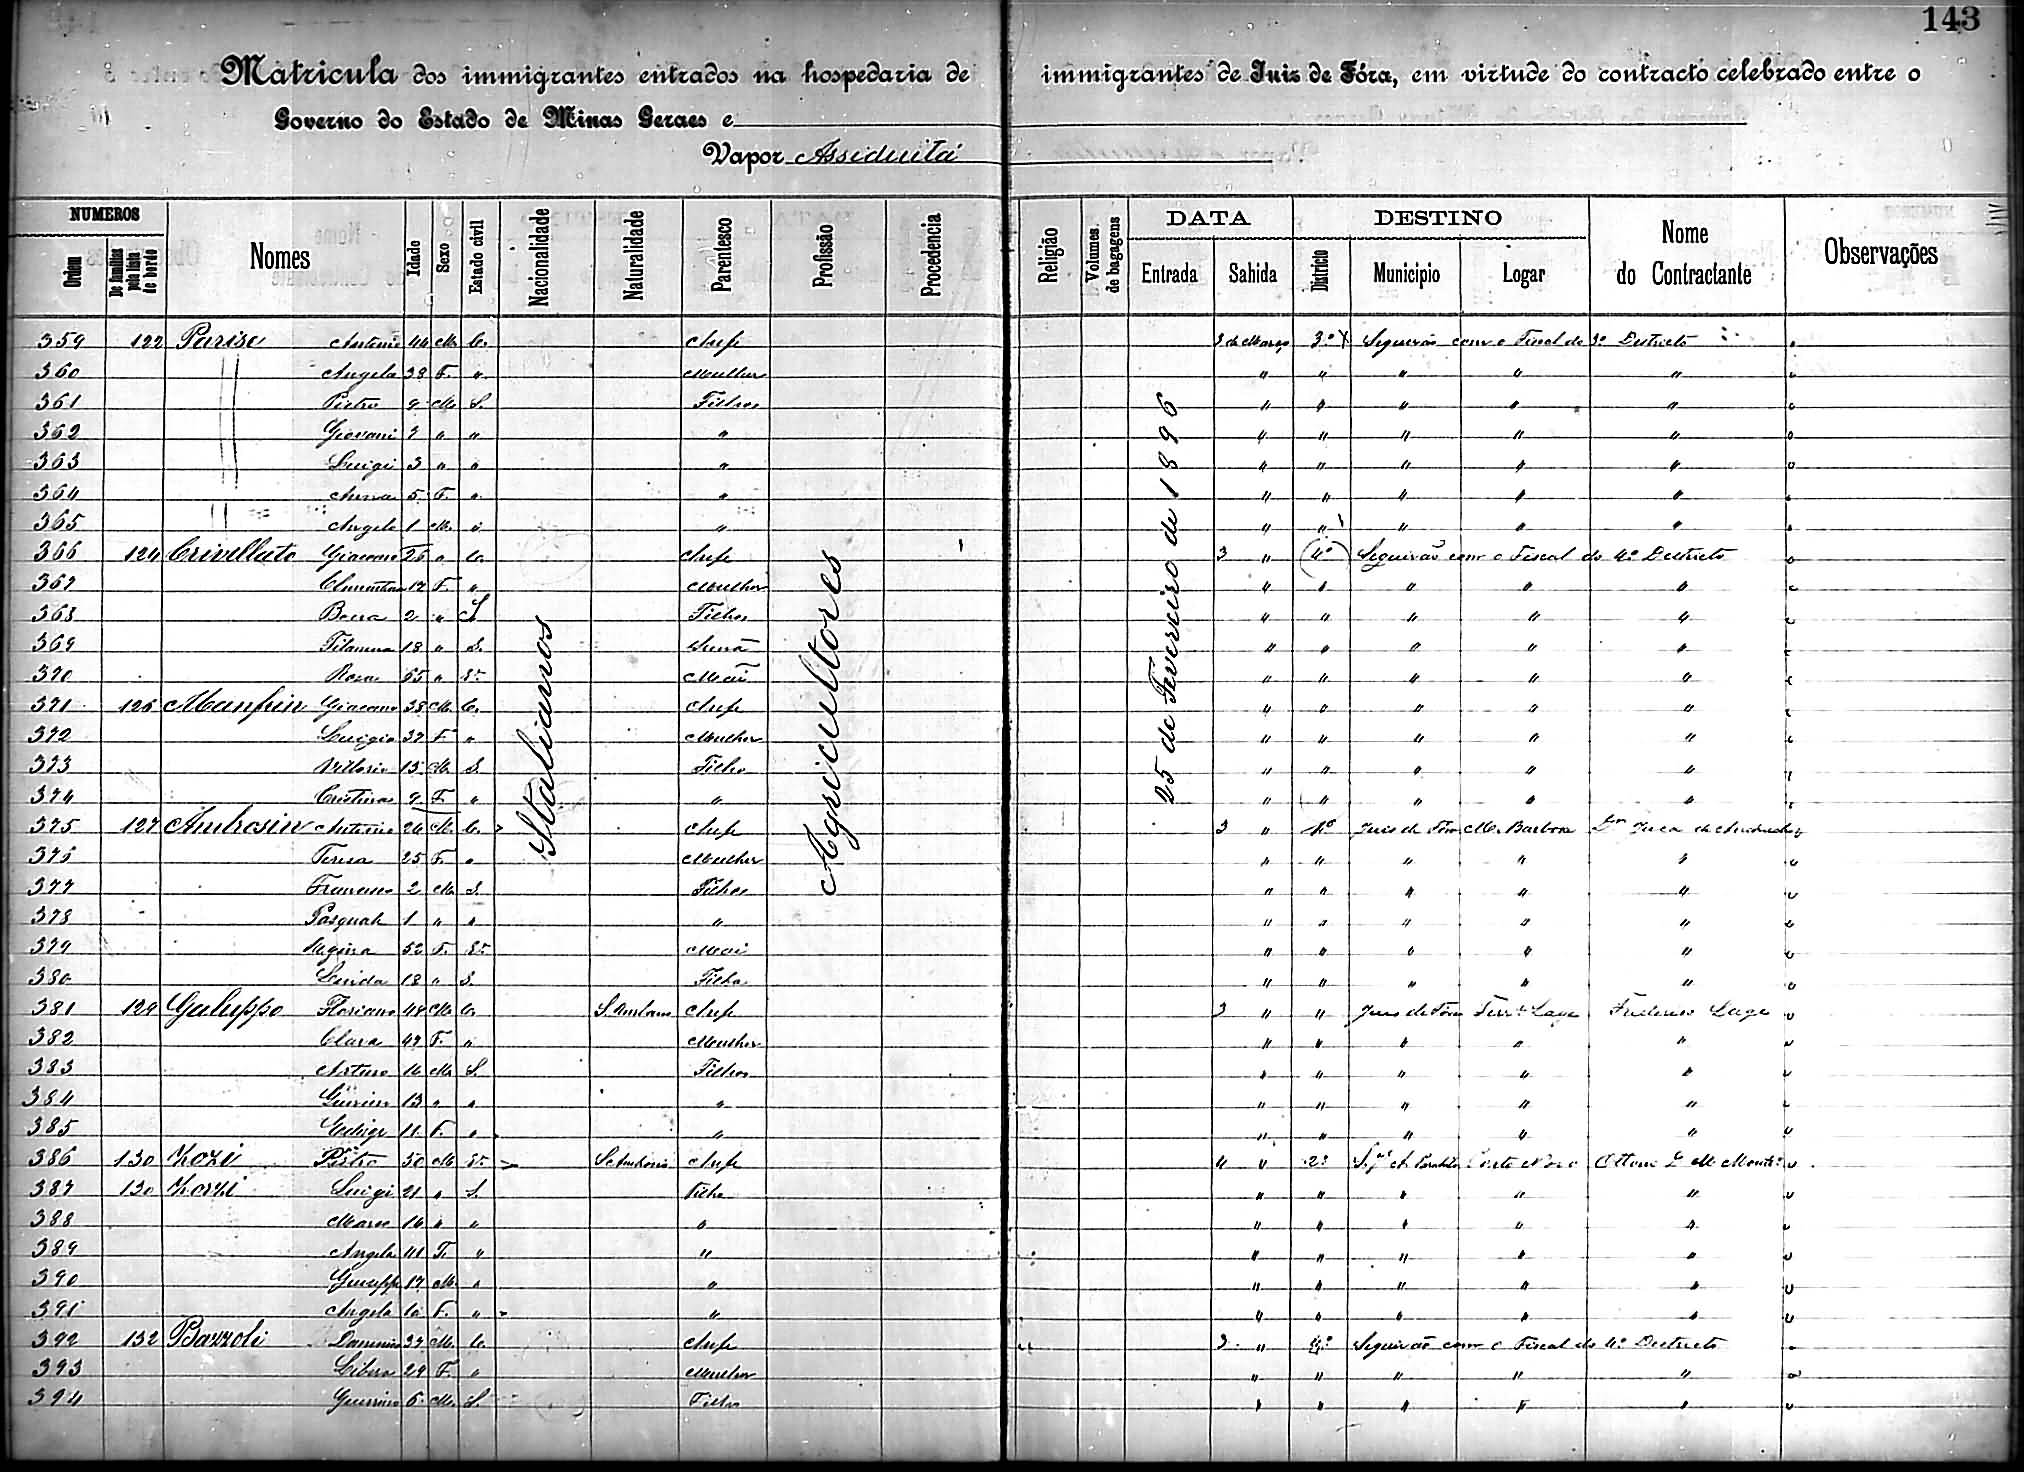 143
Matricula dos immigrantes entrados na hospedaria de immigrantes de Juiz de Fóra, em virtude do contracto celebrado entre o
Governo do Estado de Minas Geraes e
Vapor Assiduitá
NUMEROS DATA DESTINO
Ordem De familias pela lista de bordo Nomes Idade Sexo Estado civil Nacionalidade Naturalidade Parentesco Profissão Procedencia Religião Volumes de bagagens Entrada Sahida Districto Municipio Logar Nome do Contractante Observações
Italianos
Agricultores
25 de Fevereiro de 1896
359 122 Parise Antonio 44 M. C. Chefe 3 de Março 3º Seguirão com o Fiscal do 3º Districto
360 Angela 38 F. " Mulher " " " " "
361 Pietro 9 M. S. Filhos " " " " "
362 Giovani 7 " " " " " " " "
363 Luigi 3 " " " " " " " "
364 Anna 5 F. " " " " " " "
365 Angelo 1 M. " " " " " " "
366 124 Crivellato Giacomo 26 " C. Chefe 3 " 4º Seguirão com o Fiscal do 4º Districto
367 17 F. " Mulher " " " " "
368 2 " S. Filhos " " " " "
369 Filomena 18 " S. Irmã " " " " "
370 Rosa 65 " Mãi " " " " "
371 126 Manfrin Giacomo 38 M. C. Chefe " " " " "
372 Luigia 37 F. " Mulher " " " " "
373 Vittorio 15 M. S. Filho " " " " "
374 Cristina 9 F. " " " " " " "
375 127 Ambrosin Antonio 26 M. C. Chefe 3 " 1º Juiz de Fóra M. Barbosa Juca de Andrade
376 Teresa 25 F. " Mulher " " " " "
377 Francesco 2 M. S. Filhos " " " " "
378 Pasquale 1 " " " " " " " "
379 Regina 52 F. Mãi " " " " "
380 18 " S. Filha " " " " "
381 129 Galuppo Floriano 48 M. C. Chefe 3 " " Juiz de Fóra Lage Frederico Lage
382 Clara 47 F. " Mulher " " " " "
383 Arturo 16 M. S. Filhos " " " " "
384 13 " " " " " " " "
385 Edvige 11 F. " " " " " " "
386 130 Zozi Pietro 50 M Chefe 4 " 2º Porto Novo
387 130 Luigi 21 " S. Filho " " " " "
388 Marco 16 " " " " " " " "
389 Angela F. " " " " " " "
390 Giuseppe 17 M. " " " " " " "
391 Angela 10 F. " " " " " " "
392 132 Bazzoli 37 M. C. Chefe 3 " 4º Seguirão com o Fiscal do 4º Districto
393 Libera 29 F. " Mulher " " " " "
394 6 M. S. Filho " " " " "